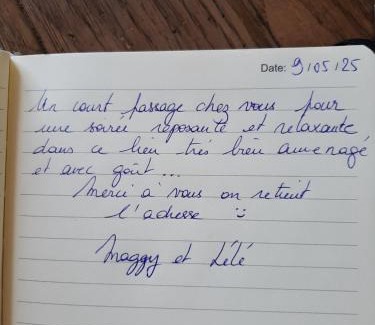 Date: 9/05/25
Un court passage chez vous pour
une soirée reposante et relaxante
dans ce lieu très bien aménagé
et avec goût...
Merci à vous on retient
l'adresse :)
Maggy et Lélé